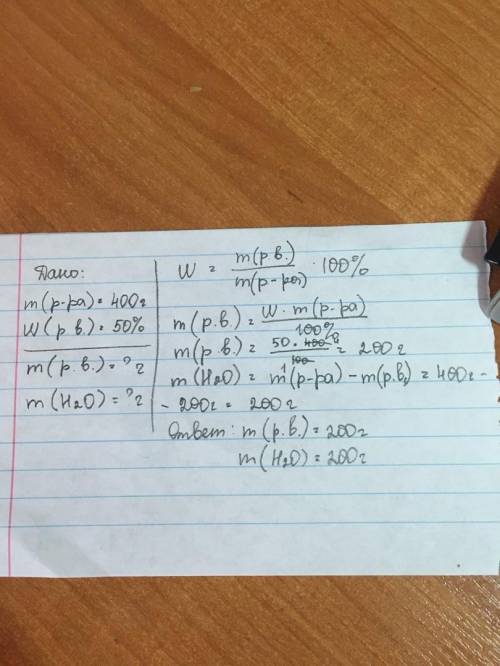 Дано:
m(р-ра) = 400г
W(р.в.) = 50%
m(р.в.) = ?г
m(H2O) = ?г
W = m(р.в.) / m(р-ра) · 100%
m(р.в.) = W · m(р-ра) / 100%
m(р.в.) = 50 · 400 / 100 = 200г
m(H2O) = m(р-ра) - m(р.в.) = 400г -
- 200г = 200г
Ответ: m(р.в.) = 200г
m(H2O) = 200г